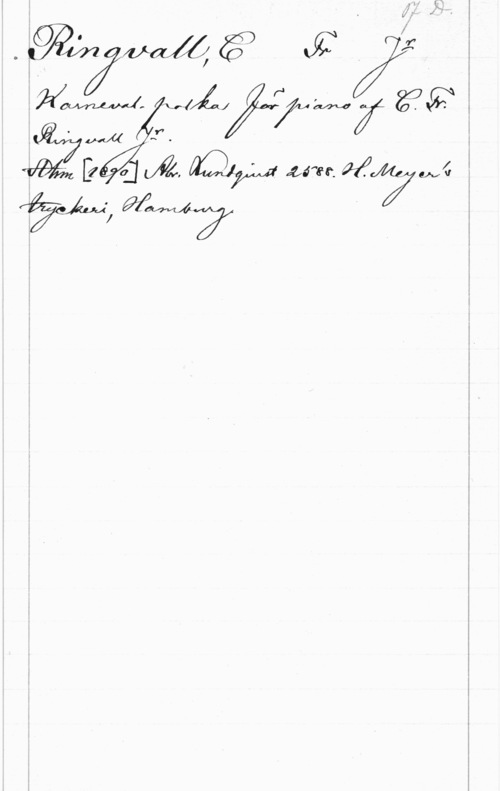 Pf D.
Ringvall, C Fr Jr
Karneval-polka för piano af C. Fr.
Ringvall Jr.
Sthm [1890] Abr. Lundquist 2588. H. Meyer's
tryckeri, Hamburg.